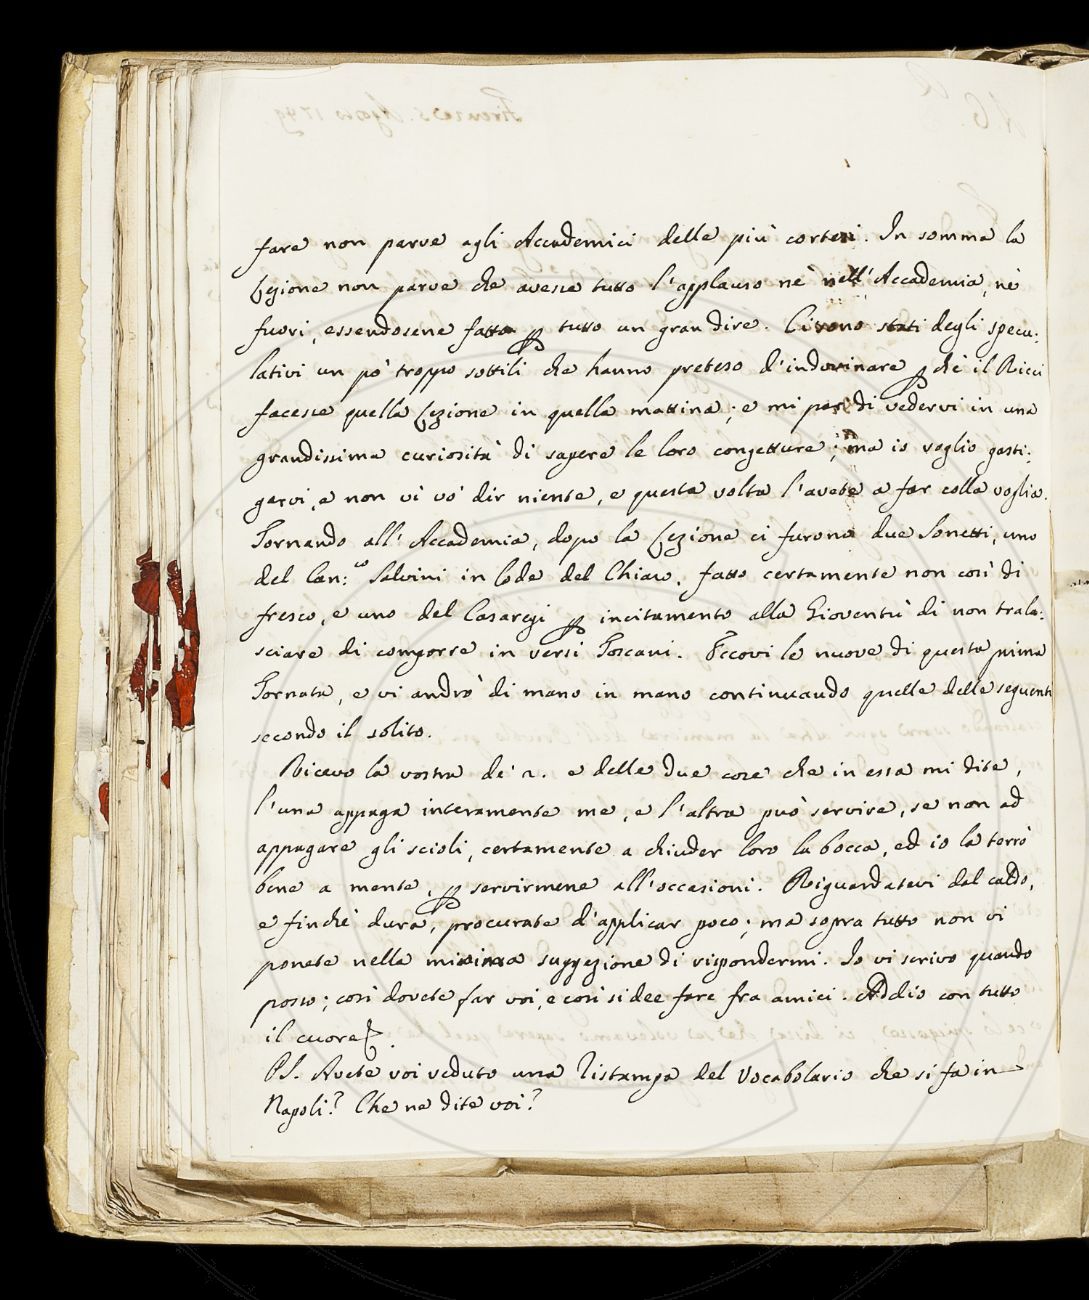 fare non parve agli Accademici delle più cortesi. In somma la
Lezione non parve che avesse tutto l'applauso nè nell'Accademia, nè
fuori, essendosene fatto p tutto un gran dire. Ci sono stati degli specu:
lativi un pò troppo sottili che hanno preteso d'indovinare p chè il Ricci
facesse quella Lezione in quella mattina; e mi par di vedervi in una
grandissima curiosità di sapere le loro conjetture; ma io voglio gasti:
garvi, e non vi vò dir niente, e questa volta l'avete a far colla voglia.
Tornando all'Accademia, dopo la Lezione ci furono due Sonetti, uno
del Can:co Salvini in lode del Chiaro, fatto certamente non così di
fresco, e uno del Casaregi p incitamento alla Gioventù di non trala:
sciare di comporre in versi Toscani. Eccovi le nuove di questa prima
Tornata, e vi andrò di mano in mano continuando quelle delle seguenti
secondo il solito.
Ricevo la vostra de' 2. e delle due cose che in essa mi dite,
l'una appaga interamente me, e l'altra può servire, se non ad
appagare gli scioli, certamente a chiuder loro la bocca, ed io la terrò
bene a mente, p servirmene all'occasioni. Riguardatevi dal caldo,
e finchè dura, procurate d'applicar poco; ma sopra tutto non vi
ponete nella minima suggezione di rispondermi. Io vi scrivo quando
posso; così dovete far voi, e così si dee fare fra amici. Addio con tutto
il cuore.
P.S. Avete voi veduto una ristampa del Vocabolario che si fa in
Napoli? Che ne dite voi?